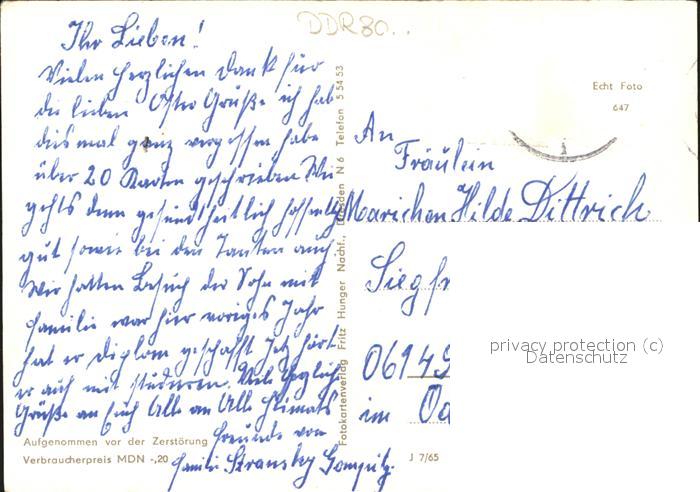 DDR 30..
Ihr Lieben!
Vielen herzlichen Dank für
die lieben Oster Grüße ich hab
diesmal ganz vergessen habe
über 20 Karten geschrieben Wie
gehts denn gesundheitlich hoffentlich
gut sowie bei den Tanten auch.
Wir hatten Besuch der Sohn mit
Familie war hier voriges Jahr
hat er Diplom geschafft Jetz hört
er auch mit studieren. Viele herzliche
Grüße an Euch Alle an Alle Heimats
freunde von
Familie Stransky Gompitz.
Aufgenommen vor der Zerstörung
Verbraucherpreis MDN -,20
Fotokartenverlag Fritz Hunger Nachf., Dresden N 6 Telefon 5 54 53
J 7/65
Echt Foto
647
An
Fräulein
Mariechen Hilde Dittrich
Siegfr
06149
im Od
privacy protection (c)
Datenschutz